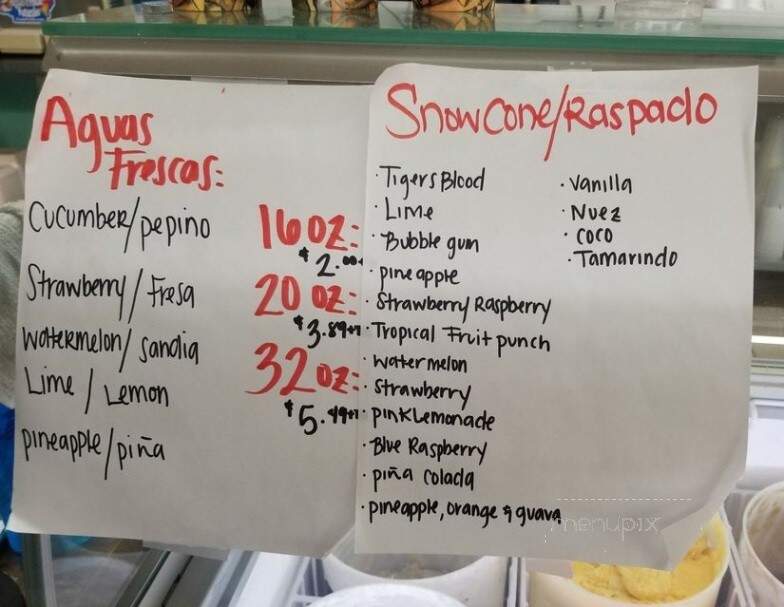 Aguas
Frescas:
Cucumber/pepino
Strawberry/Fresa
Watermelon/sandia
Lime/Lemon
pineapple/piña
16 oz:
$2.00+
20 oz:
$3.89+
32 oz:
$5.49+
Snow Cone/Raspado
· Tigers Blood
· Lime
· Bubble gum
· pineapple
· Strawberry Raspberry
· Tropical Fruit punch
· watermelon
· strawberry
· pink Lemonade
· Blue Raspberry
· piña colada
· pineapple, orange & guava
· Vanilla
· Nuez
· coco
· Tamarindo
menupix